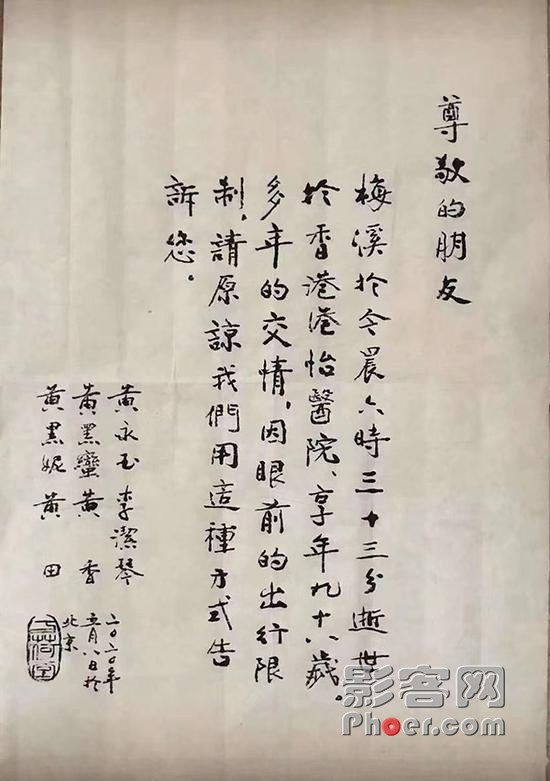 尊敬的朋友
梅溪於今晨六時三十三分逝世
於香港港怡醫院、享年九十八歲。
多年的交情,因眼前的出行限
制,請原諒我們用這種方式告
訴您。
黄永玉 李潔琴
黄黑蠻 黄香
黄黑妮 黄田
二〇二〇年
五月八日於
北京
影客网
Phoer.com